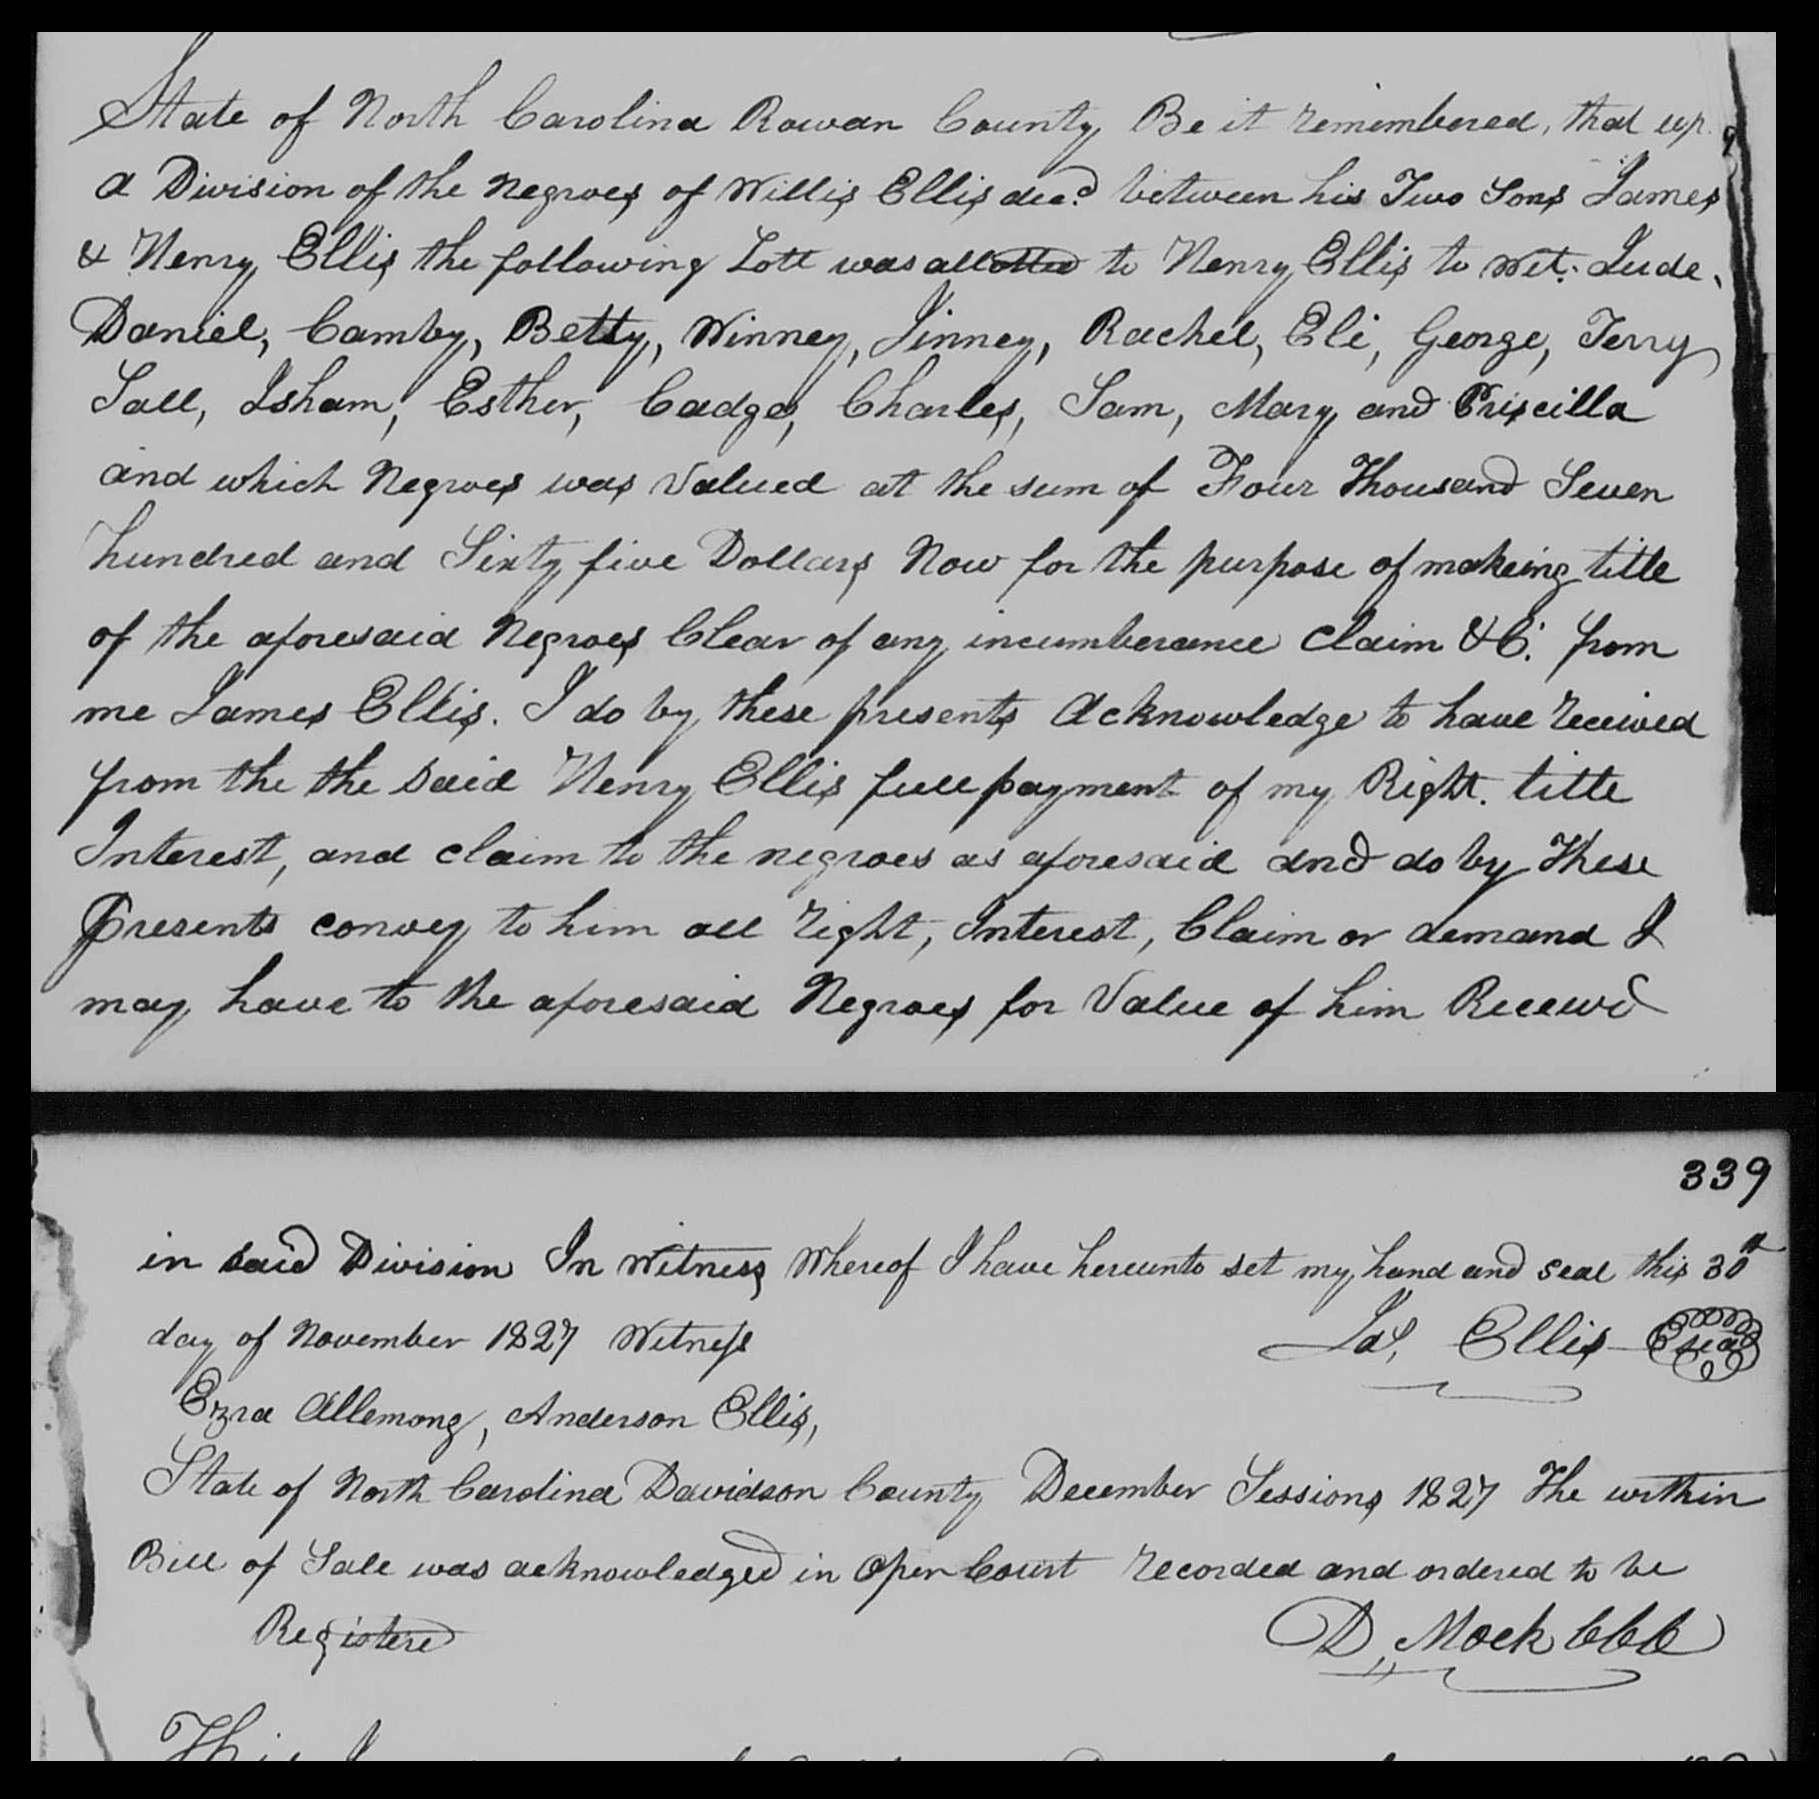 State of North Carolina Rowan County Be it remembered, that up
a Division of the Negroes of Willis Ellis decd. between his Two Sons James
& Henry Ellis the following Lott was allotted to Henry Ellis to wit: Jude,
Daniel, Camby, Betty, Winney, Jinney, Rachel, Eli, George, Terry
Sall, Isham, Esther, Cadge, Charles, Sam, Mary and Priscilla
and which Negroes was Valued at the sum of Four Thousand Seven
hundred and Sixty five Dollars Now for the purpose of makeing title
of the aforesaid Negroes Clear of any incumberance Claim &C. from
me James Ellis. I do by these presents Acknowledge to have received
from the the Said Henry Ellis full payment of my Right. title
Interest, and claim to the negroes as aforesaid and do by These
Presents convey to him all right, Interest, Claim or demand I
may have to the aforesaid Negroes for Value of him Receivd
339
in said Division In Witness Whereof I have hereunto set my hand and seal this 30th
day of November 1827 Witness
Jas, Ellis seal
Ezra Allemong, Anderson Ellis,
State of North Carolina Davidson County December Sessions 1827 The within
Bill of Sale was acknowledged in Open Court recorded and ordered to be
Registered
D, Mock CCC